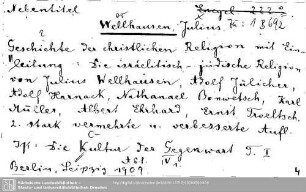 Nebentitel
Wellhausen, Julius
Geschichte der christlichen Religion mit Ein-
leitung: Die israelitisch-jüdische Religion
von Julius Wellhausen, Adolf Jülicher,
Adolf Harnack, Nathanael Bonwetsch, Karl
Müller, Albert Ehrhard, Ernst Troeltsch.
2. stark vermehrte u. verbesserte Aufl.
Die Kultur der Gegenwart T. I
Abt. IV 1.
Berlin, Leipzig 1909.